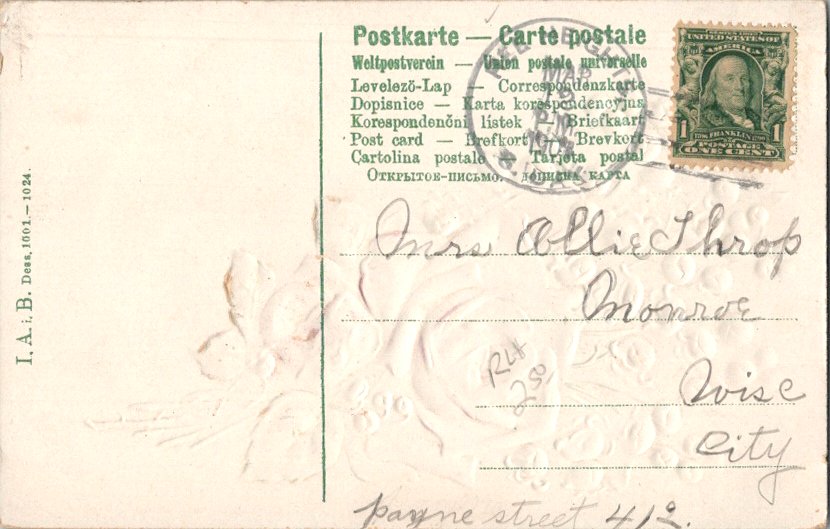 Postkarte — Carte postale
Weltpostverein — Union postale universelle
Levelező-Lap — Correspondenzkarte
Dopisnice — Karta korespondencyjna
Korespondenční lístek — Briefkaart
Post card — Brefkort — Brevkort
Cartolina postale — Tarjeta postal
Открытое-письмо. дописна карта
REE HEIGHTS
MAR
P.M.
S. DAK.
SERIES 1902
UNITED STATES OF
AMERICA
1 FRANKLIN 1
POSTAGE
ONE CENT
I. A. i. B. Dess, 1501.—1024.
Mrs Ollie Throp
Monroe
Wisc
City
payne street 412.
RLH
250